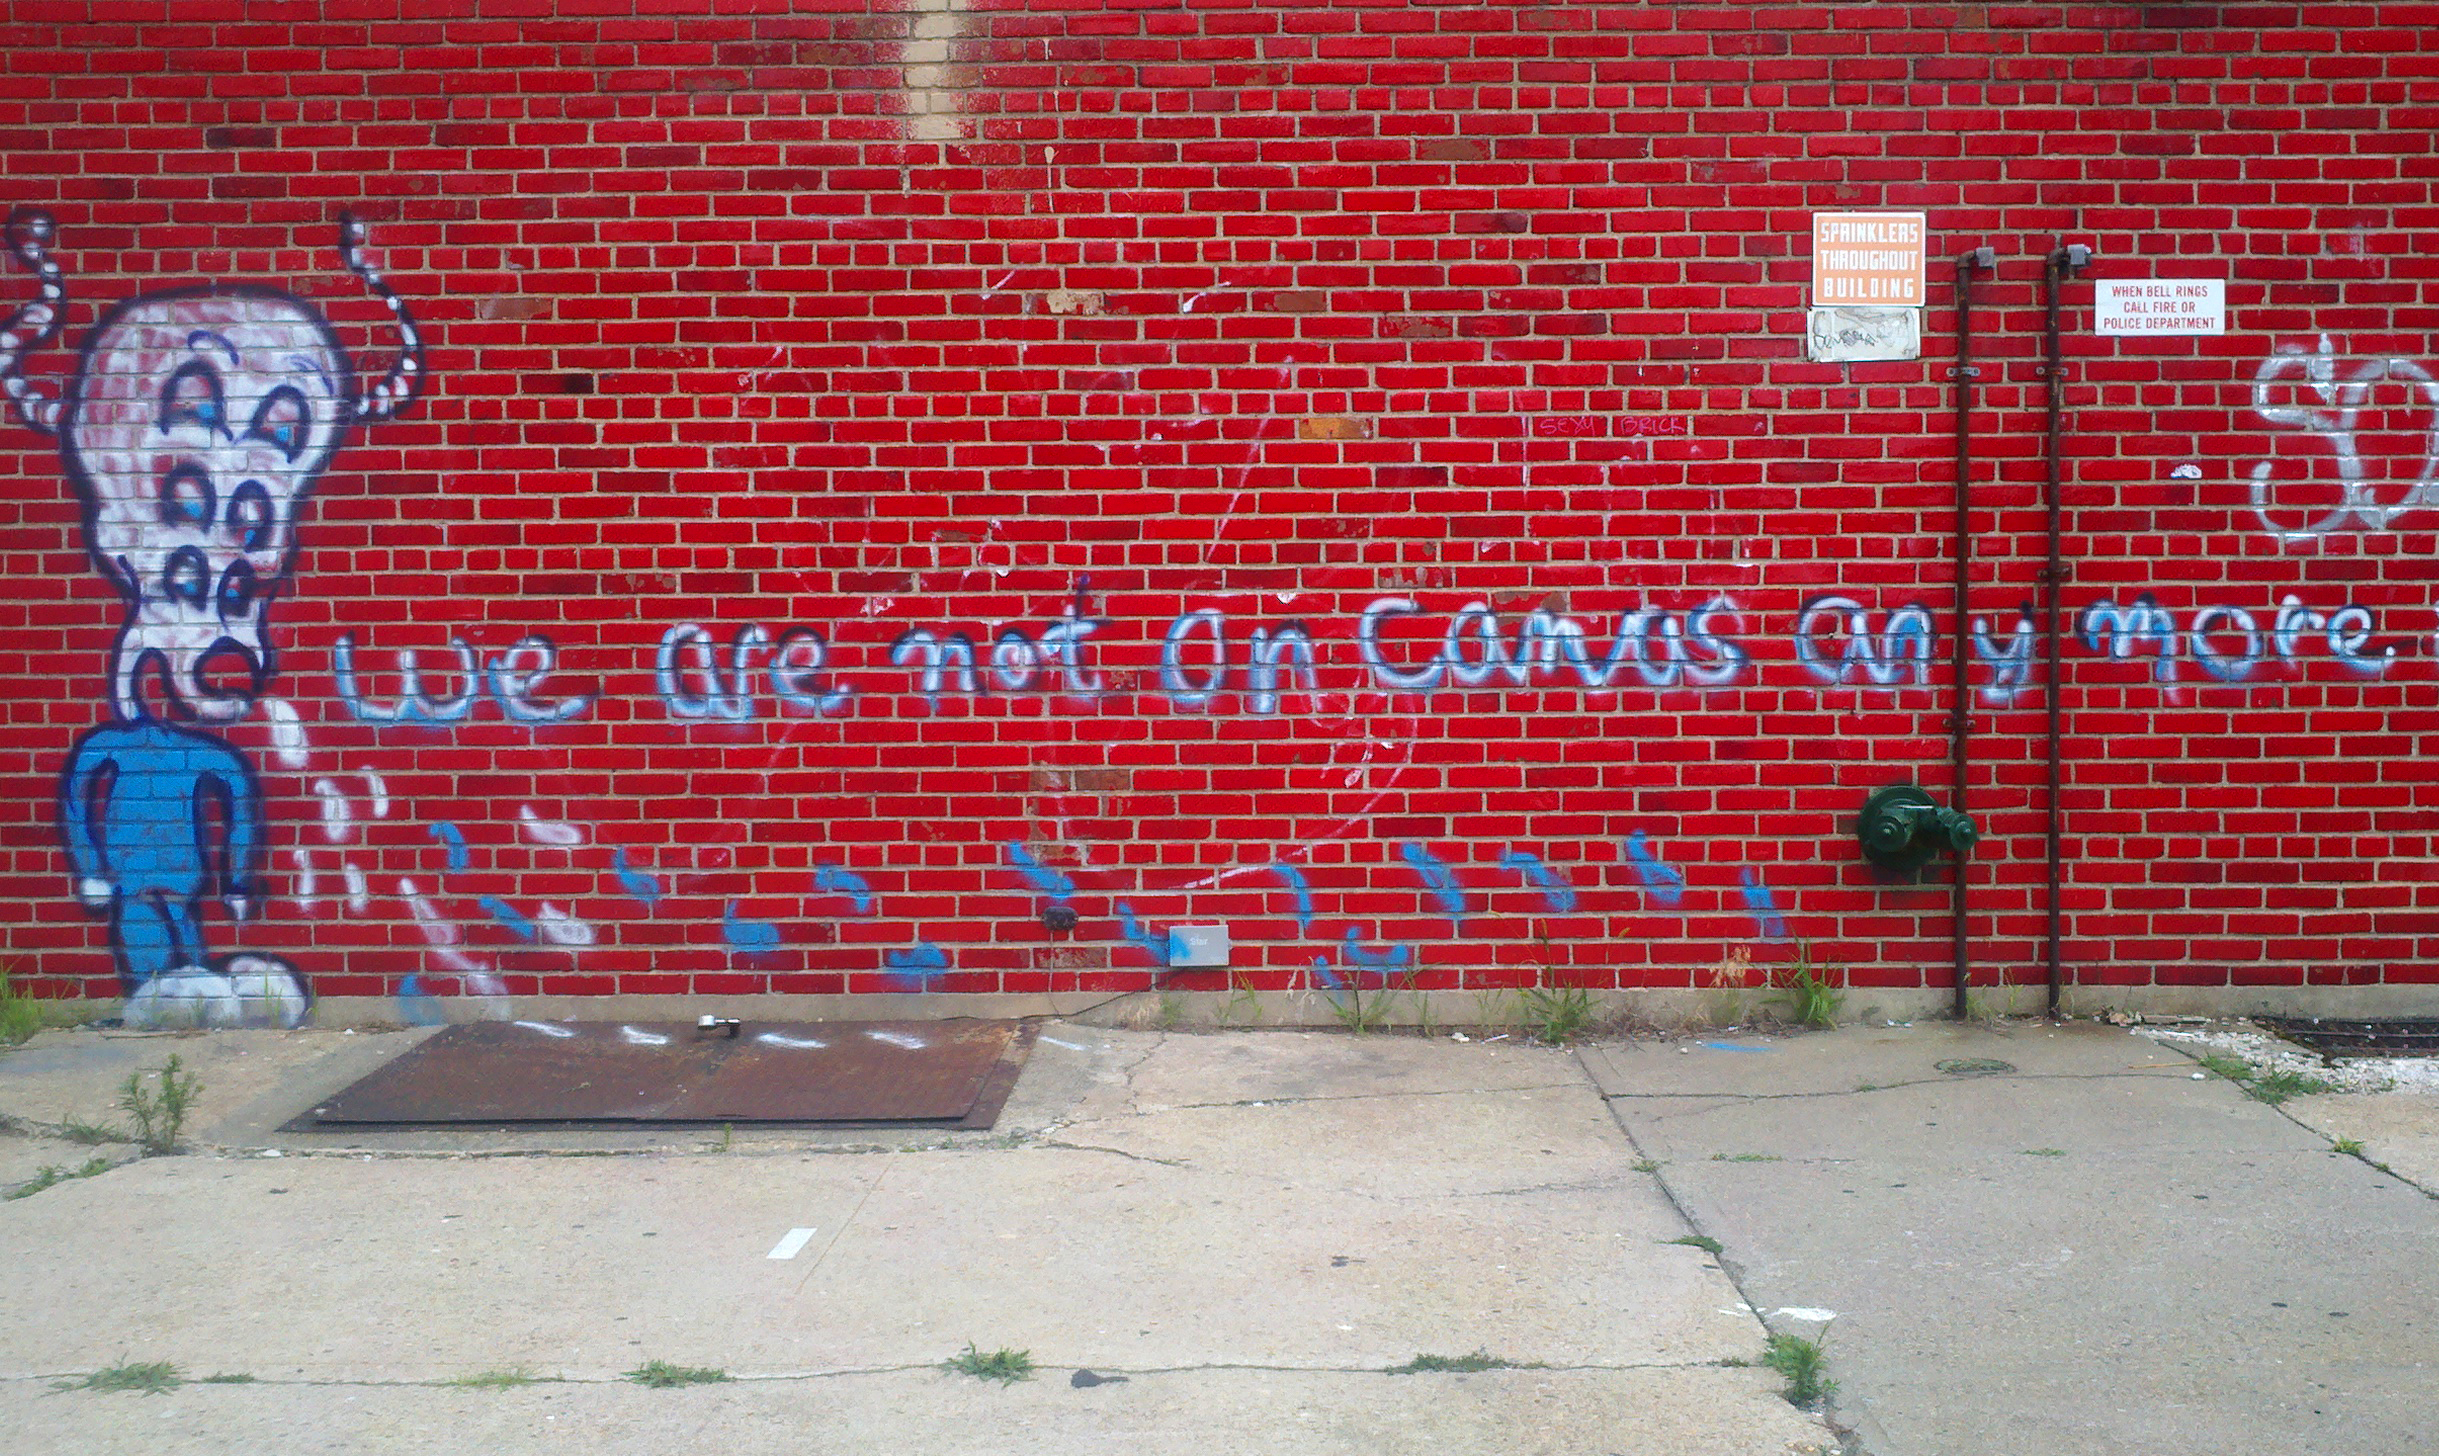 SPRINKLERS
THROUGHOUT
BUILDING
WHEN BELL RINGS
CALL FIRE OR
POLICE DEPARTMENT
SEXY BRICK
we are not on canvas any more.